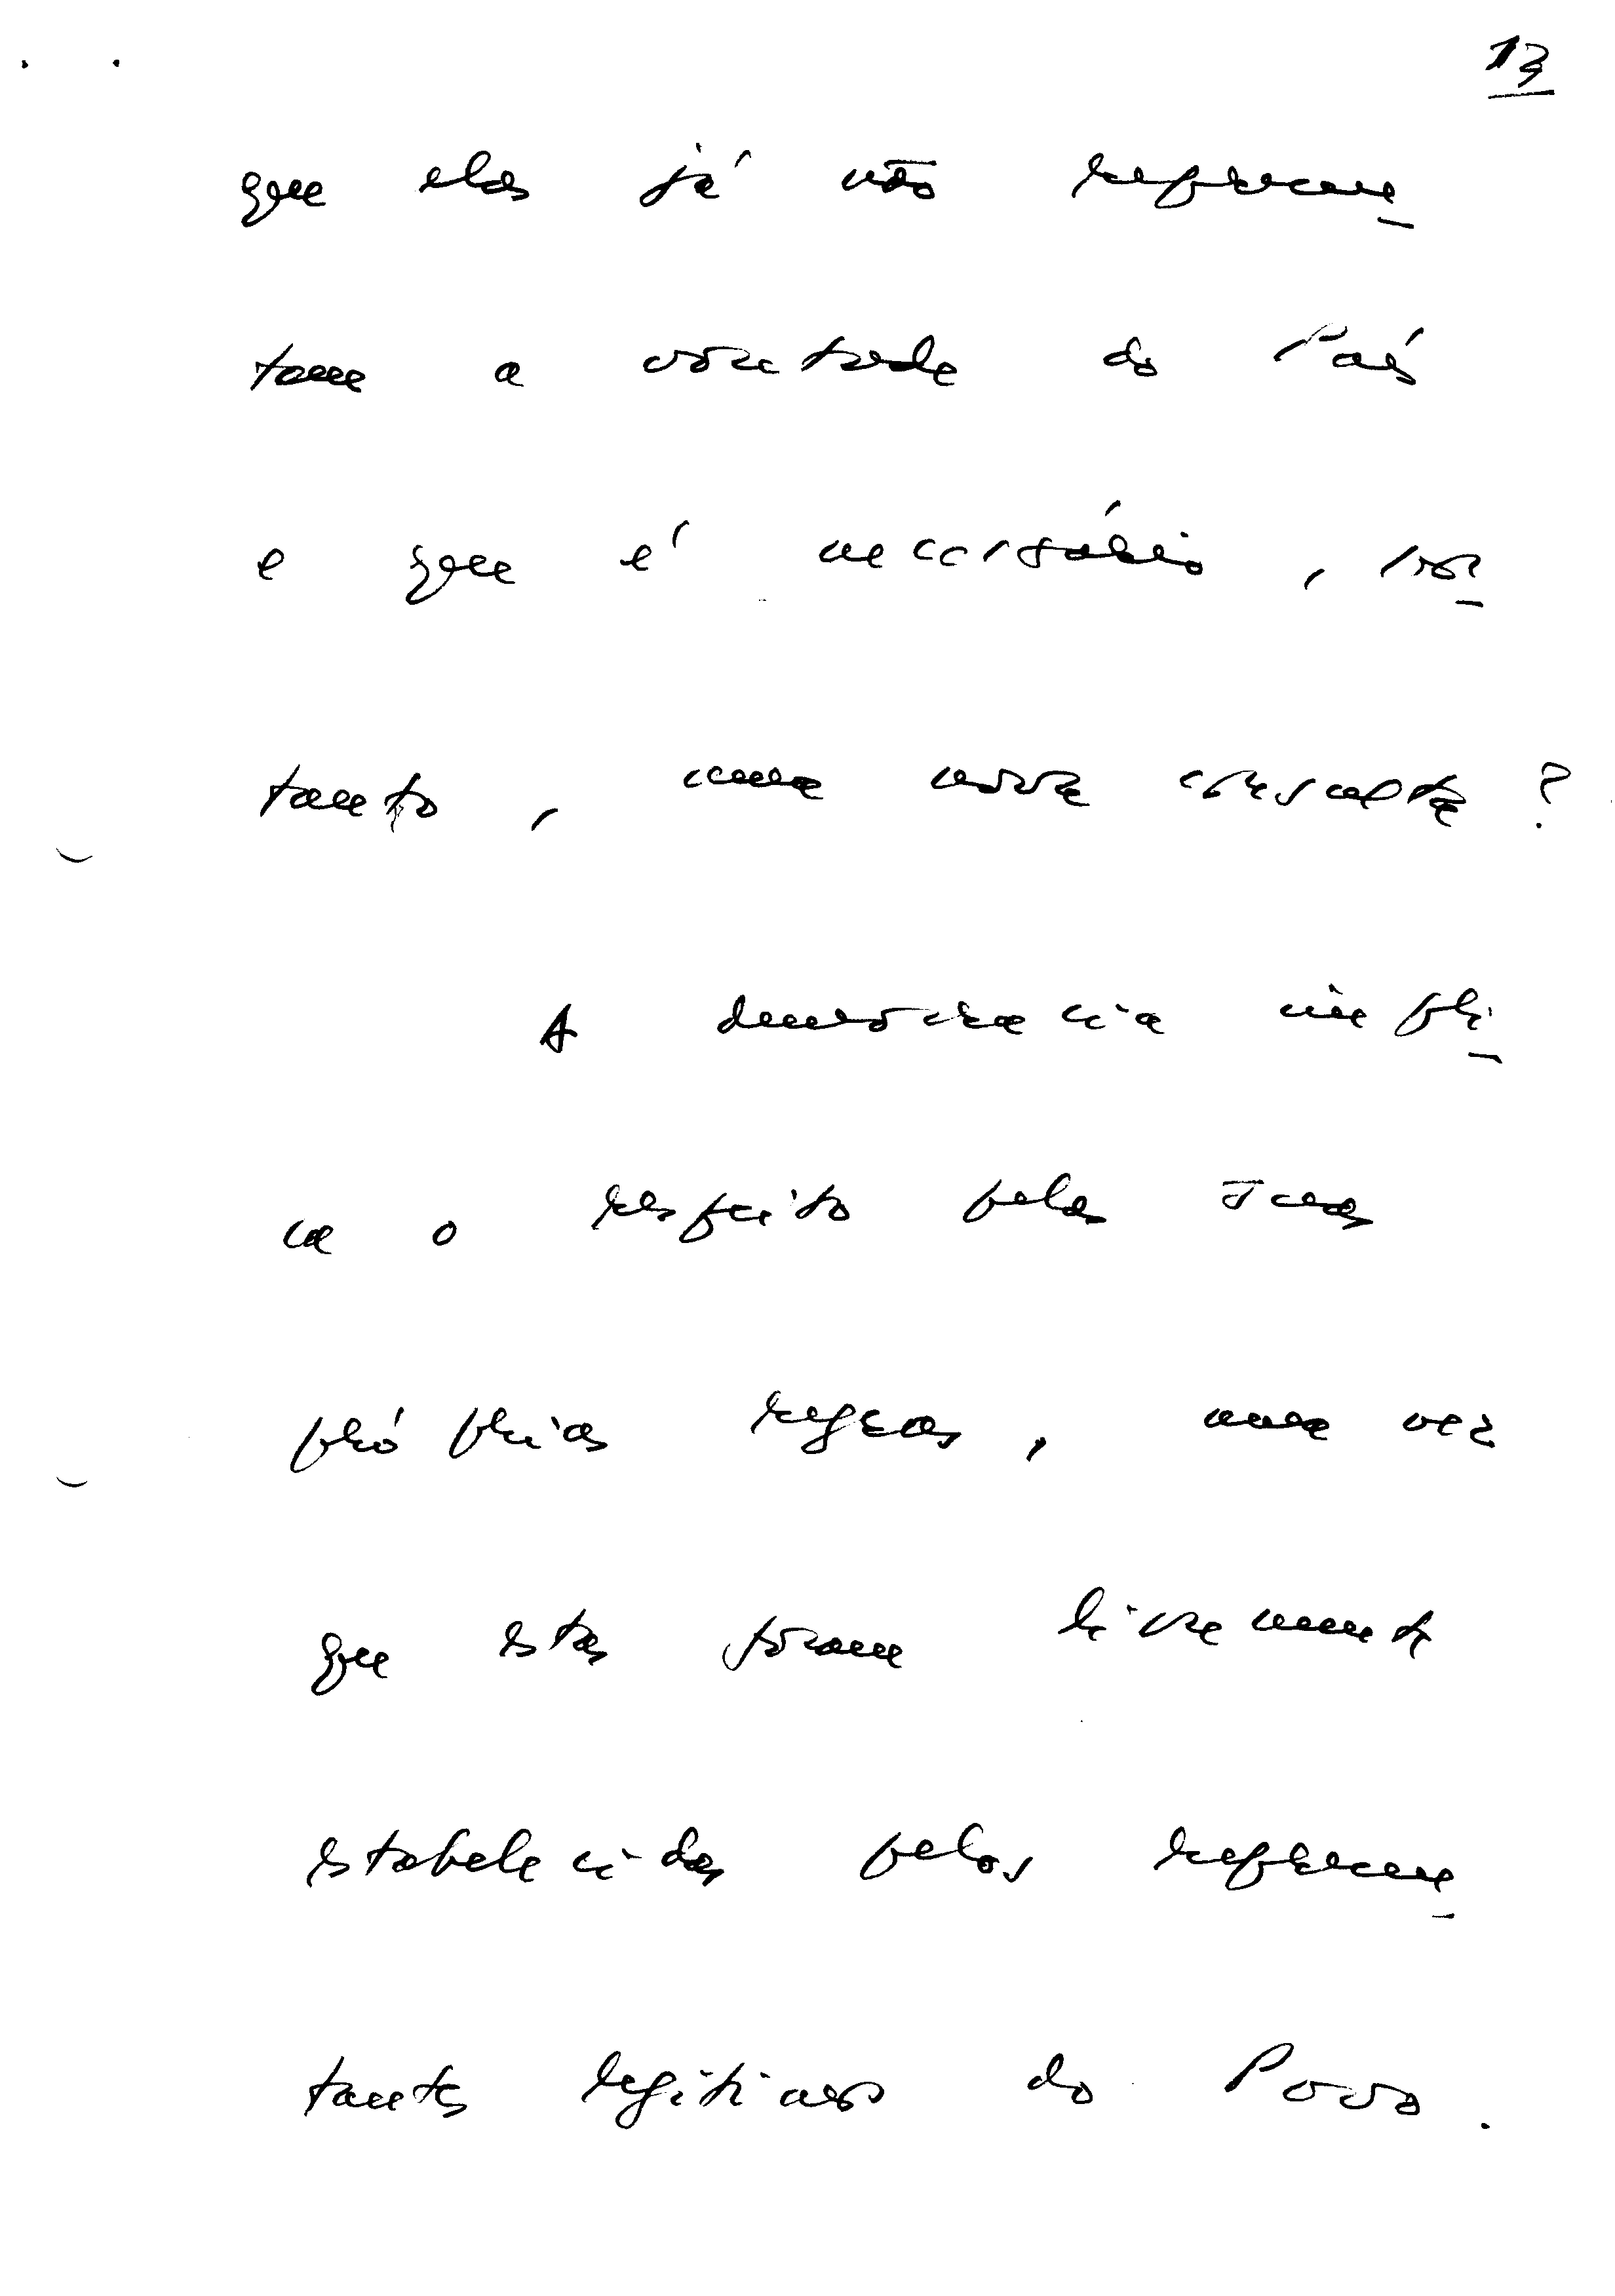 13
que elas já não represen_
tam a vontade do País
e que é necessário, por_
tanto, uma nova consulta?
A democracia impli_
ca o respeito pelas suas
próprias regras, uma vez
que estas foram livremente
estabelecidas pelos represen_
tantes legítimos do Povo.